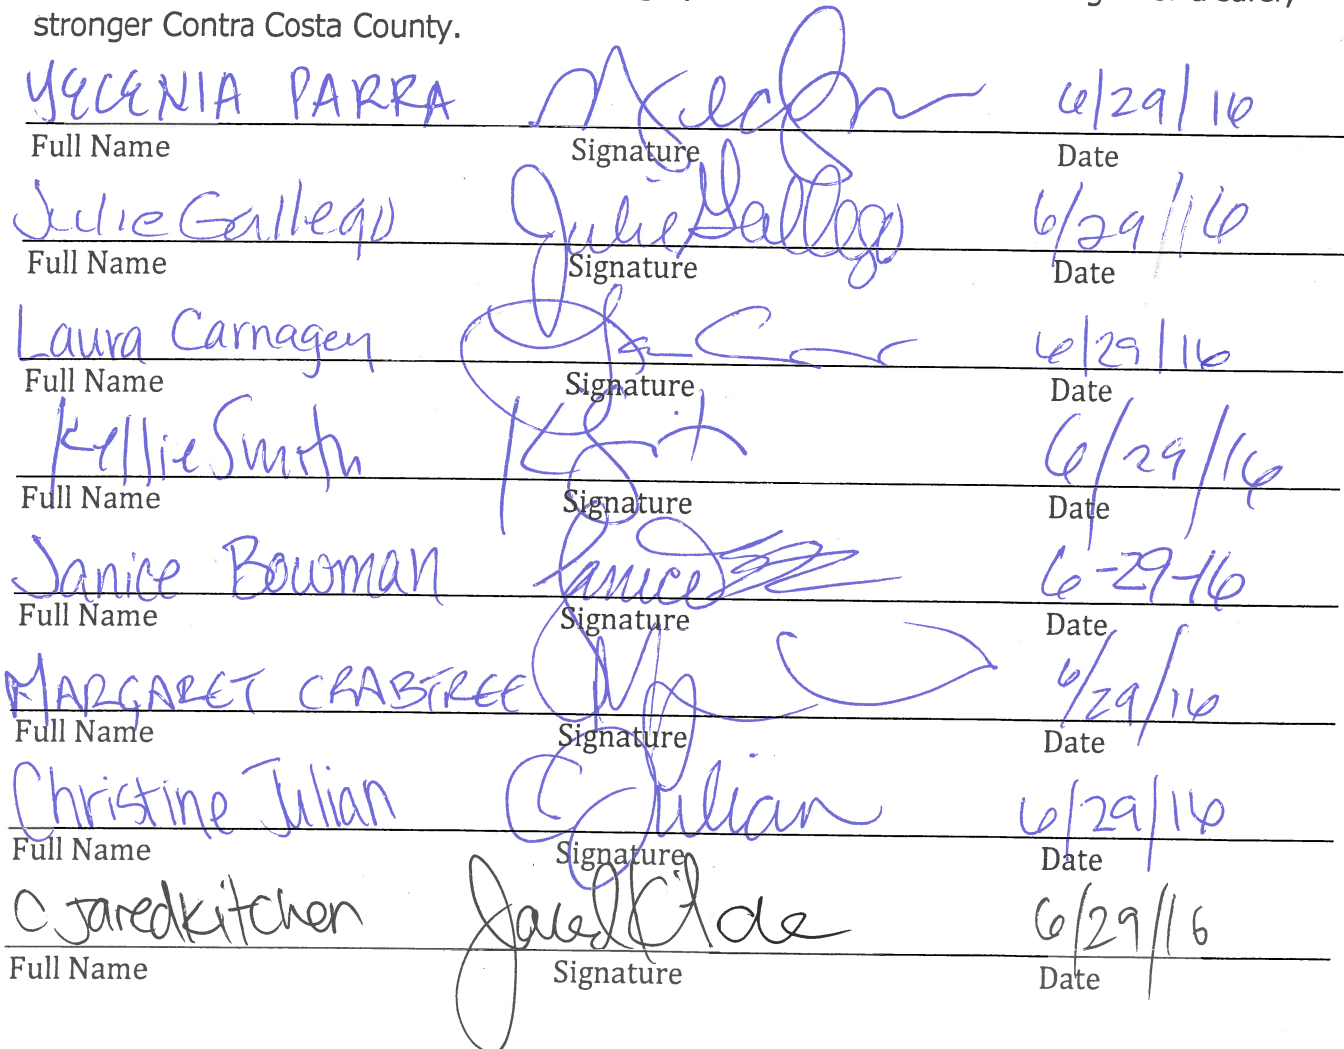 stronger Contra Costa County.
YECENIA PARRA 6/29/16
Full Name Signature Date
Julie Gallego Julie Gallego 6/29/16
Full Name Signature Date
Laura Carnagey 6/29/16
Full Name Signature Date
Kellie Smith 6/29/16
Full Name Signature Date
Janice Bowman Janice 6-29-16
Full Name Signature Date
MARGARET CRABTREE 6/29/16
Full Name Signature Date
Christine Julian C Julian 6/29/16
Full Name Signature Date
C Jared kitchen Jared 6/29/16
Full Name Signature Date